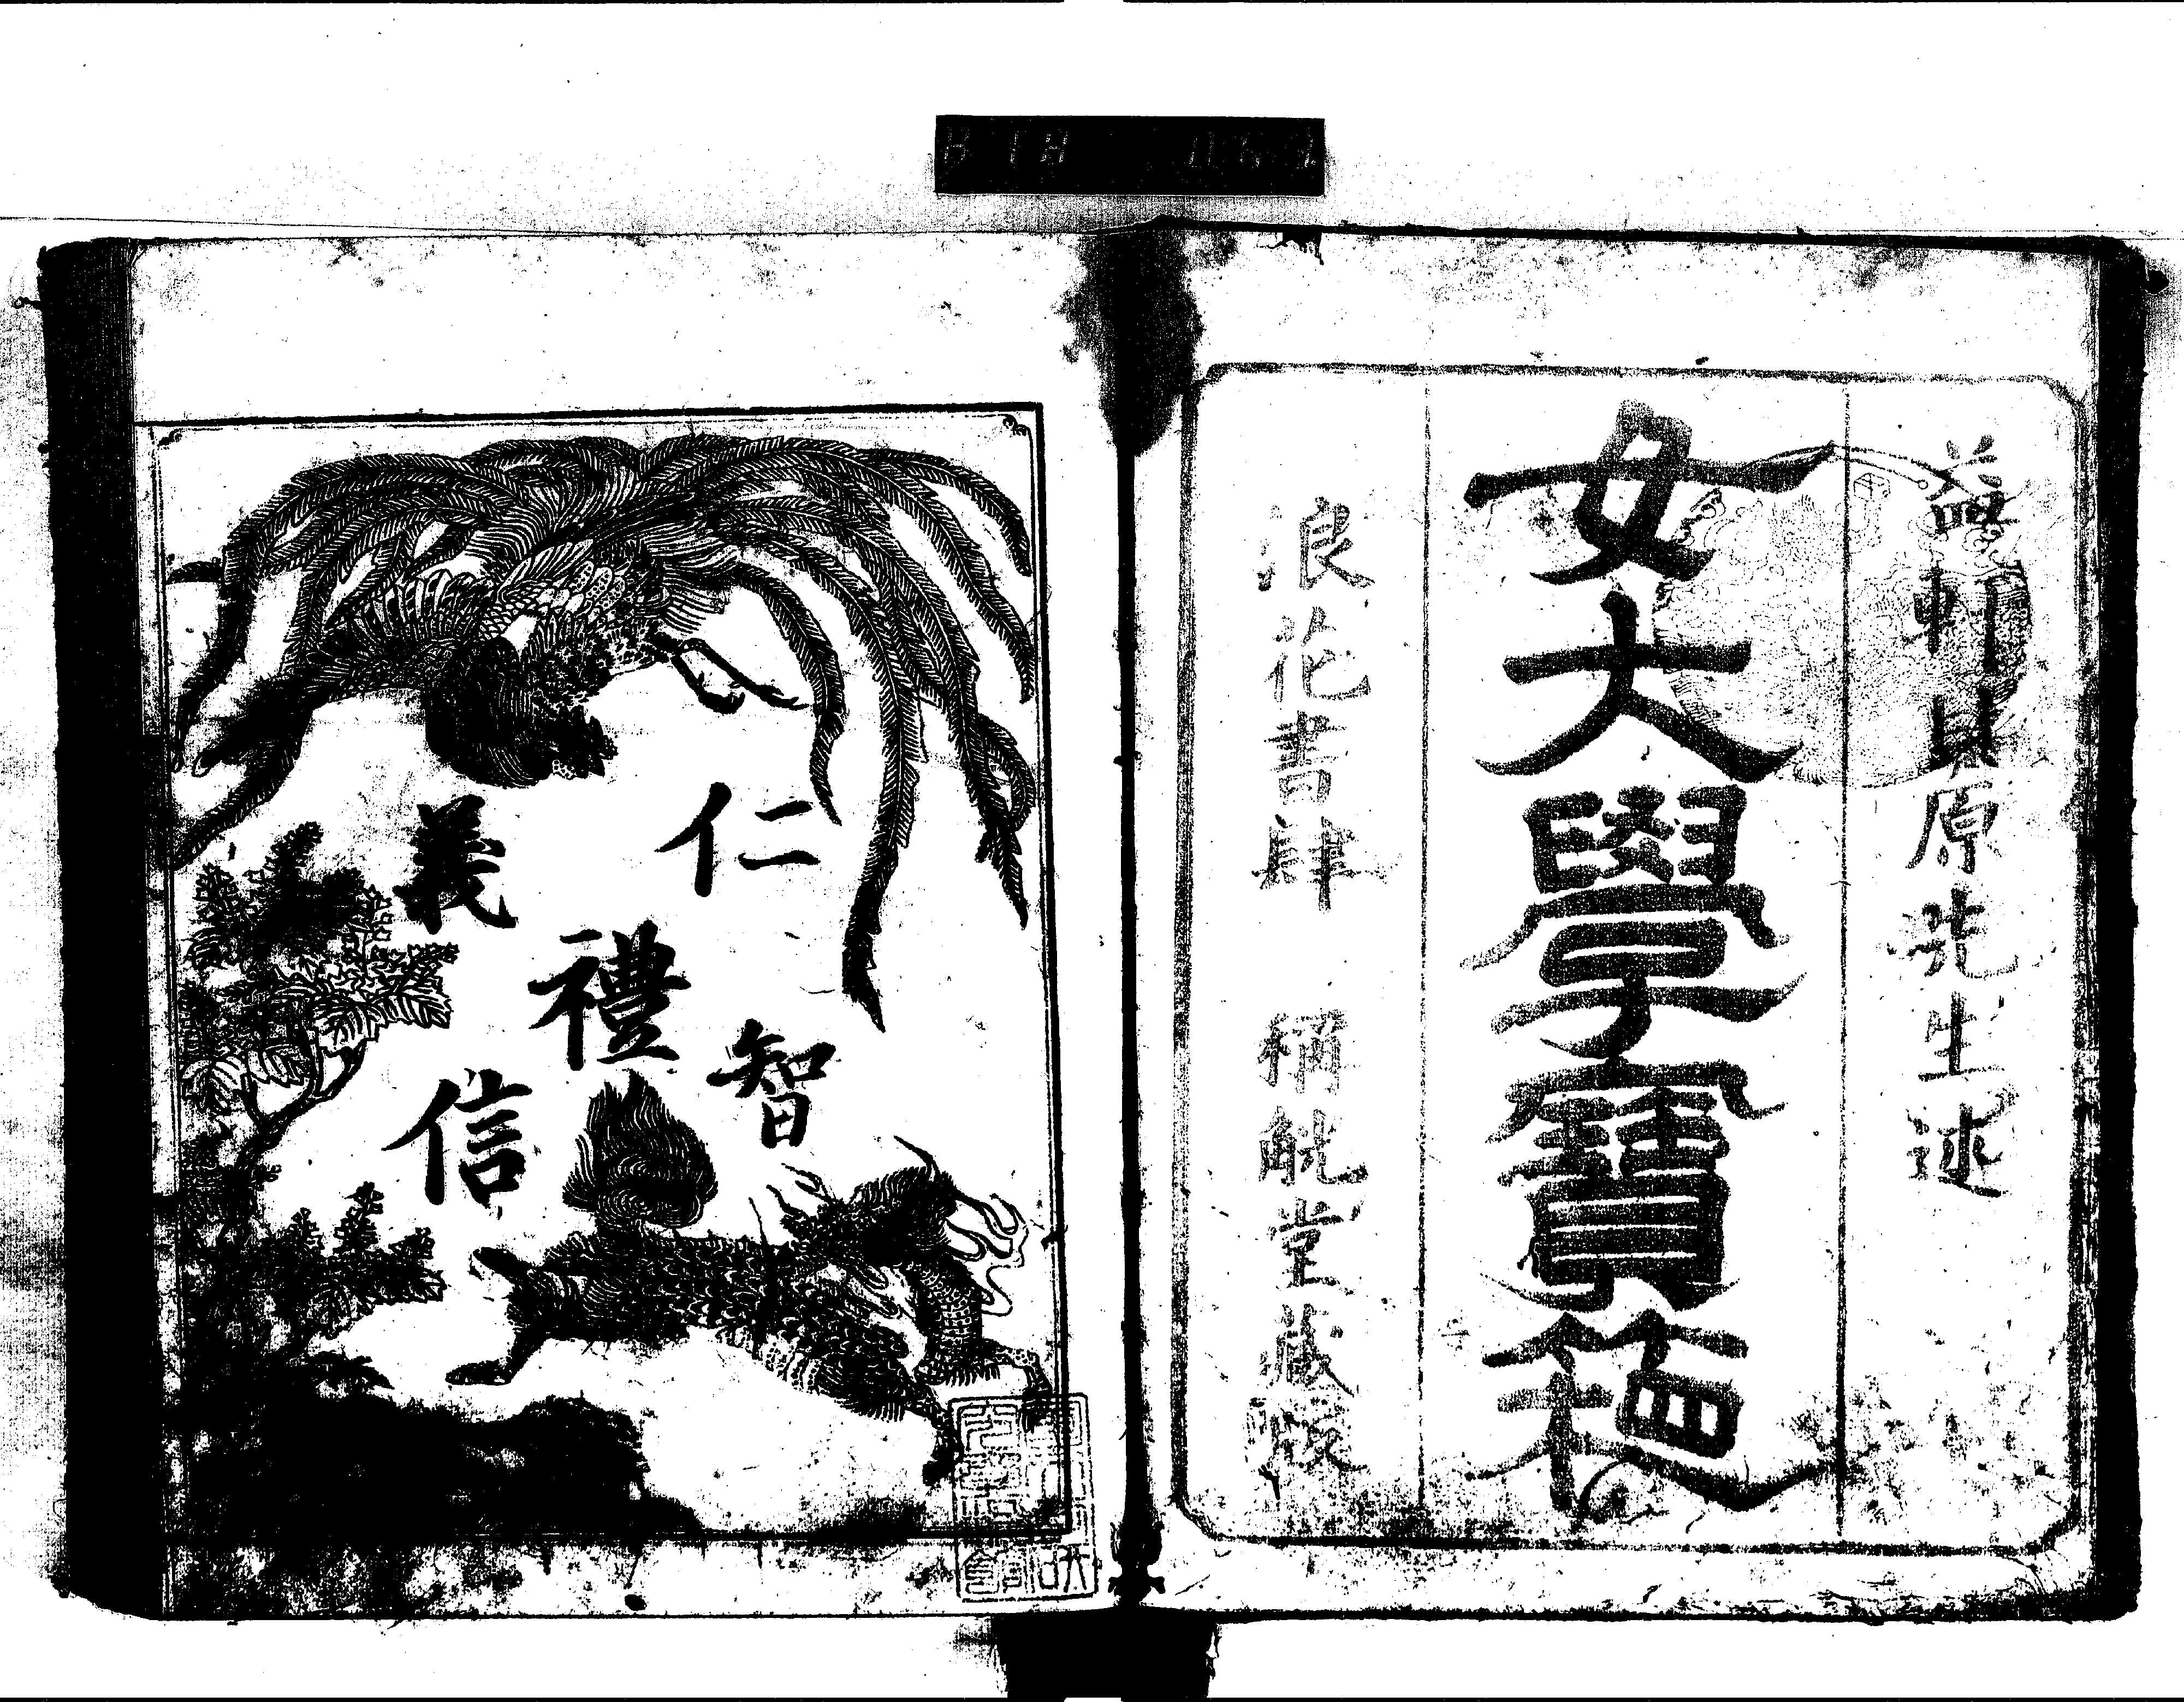 益軒貝原先生述
女大學寶箱
浪花書肆 稱觥堂藏版
仁
義
禮
智
信